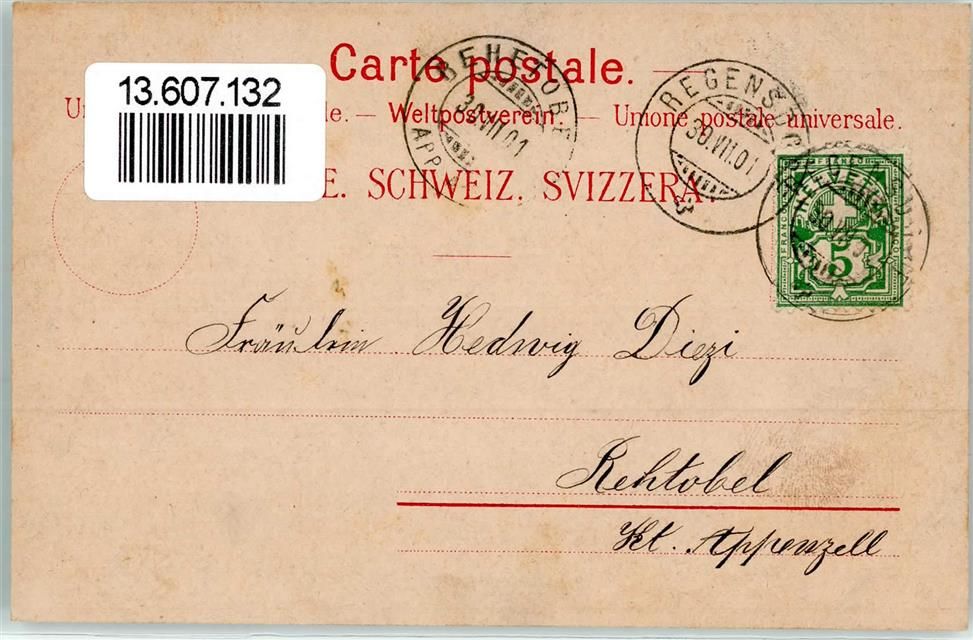 Carte postale.
13.607.132
Un le. — Weltpostverein. — Unione postale universale.
E. SCHWEIZ. SVIZZERA.
REHETOBEL
30.VII.01
APP
REGENSDORF
30.VII.01
FRANCO
HELVETIA
5
Fräulein Hedwig Diezi
Rehtobel
Kt. Appenzell